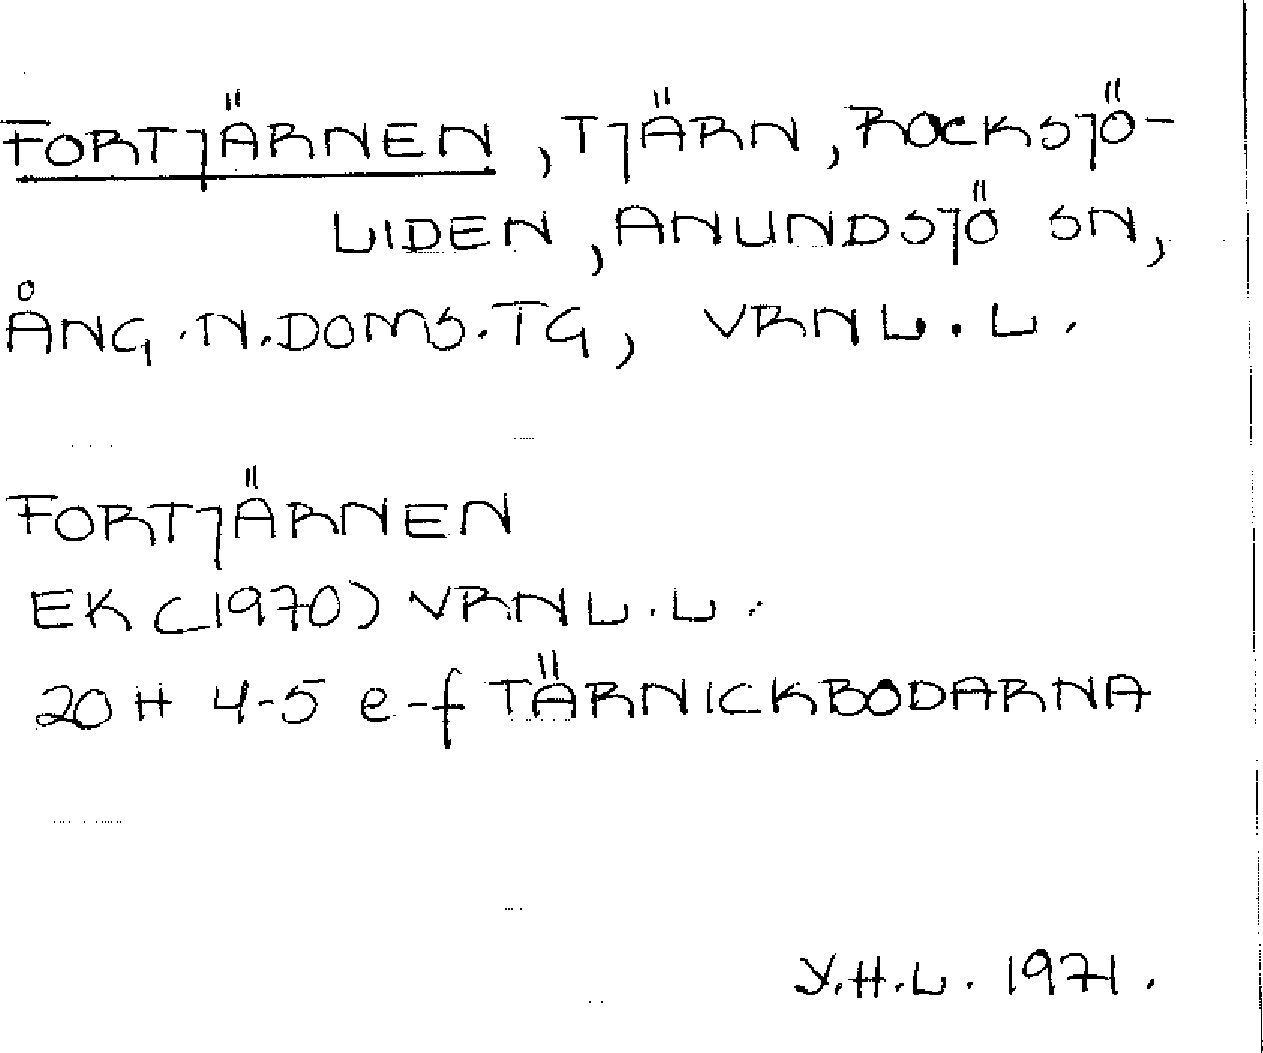 FORTJÄRNEN, TJÄRN, ROCKSJÖ-
LIDEN, ANUNDSJÖ SN,
ÅNG.N.DOMS.TG, VRNL.L.
FORTJÄRNEN
EK (1970) VRNL.L.
20H 4-5 e-f TÄRNICKBODARNA
Y.H.L. 1971.